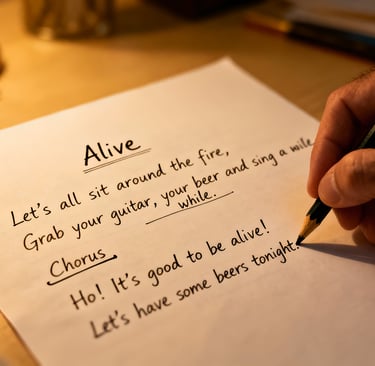 Alive
Let's all sit around the fire,
Grab your guitar, your beer and sing a wile
while.
Chorus
Ho! It's good to be alive!
Let's have some beers tonight.